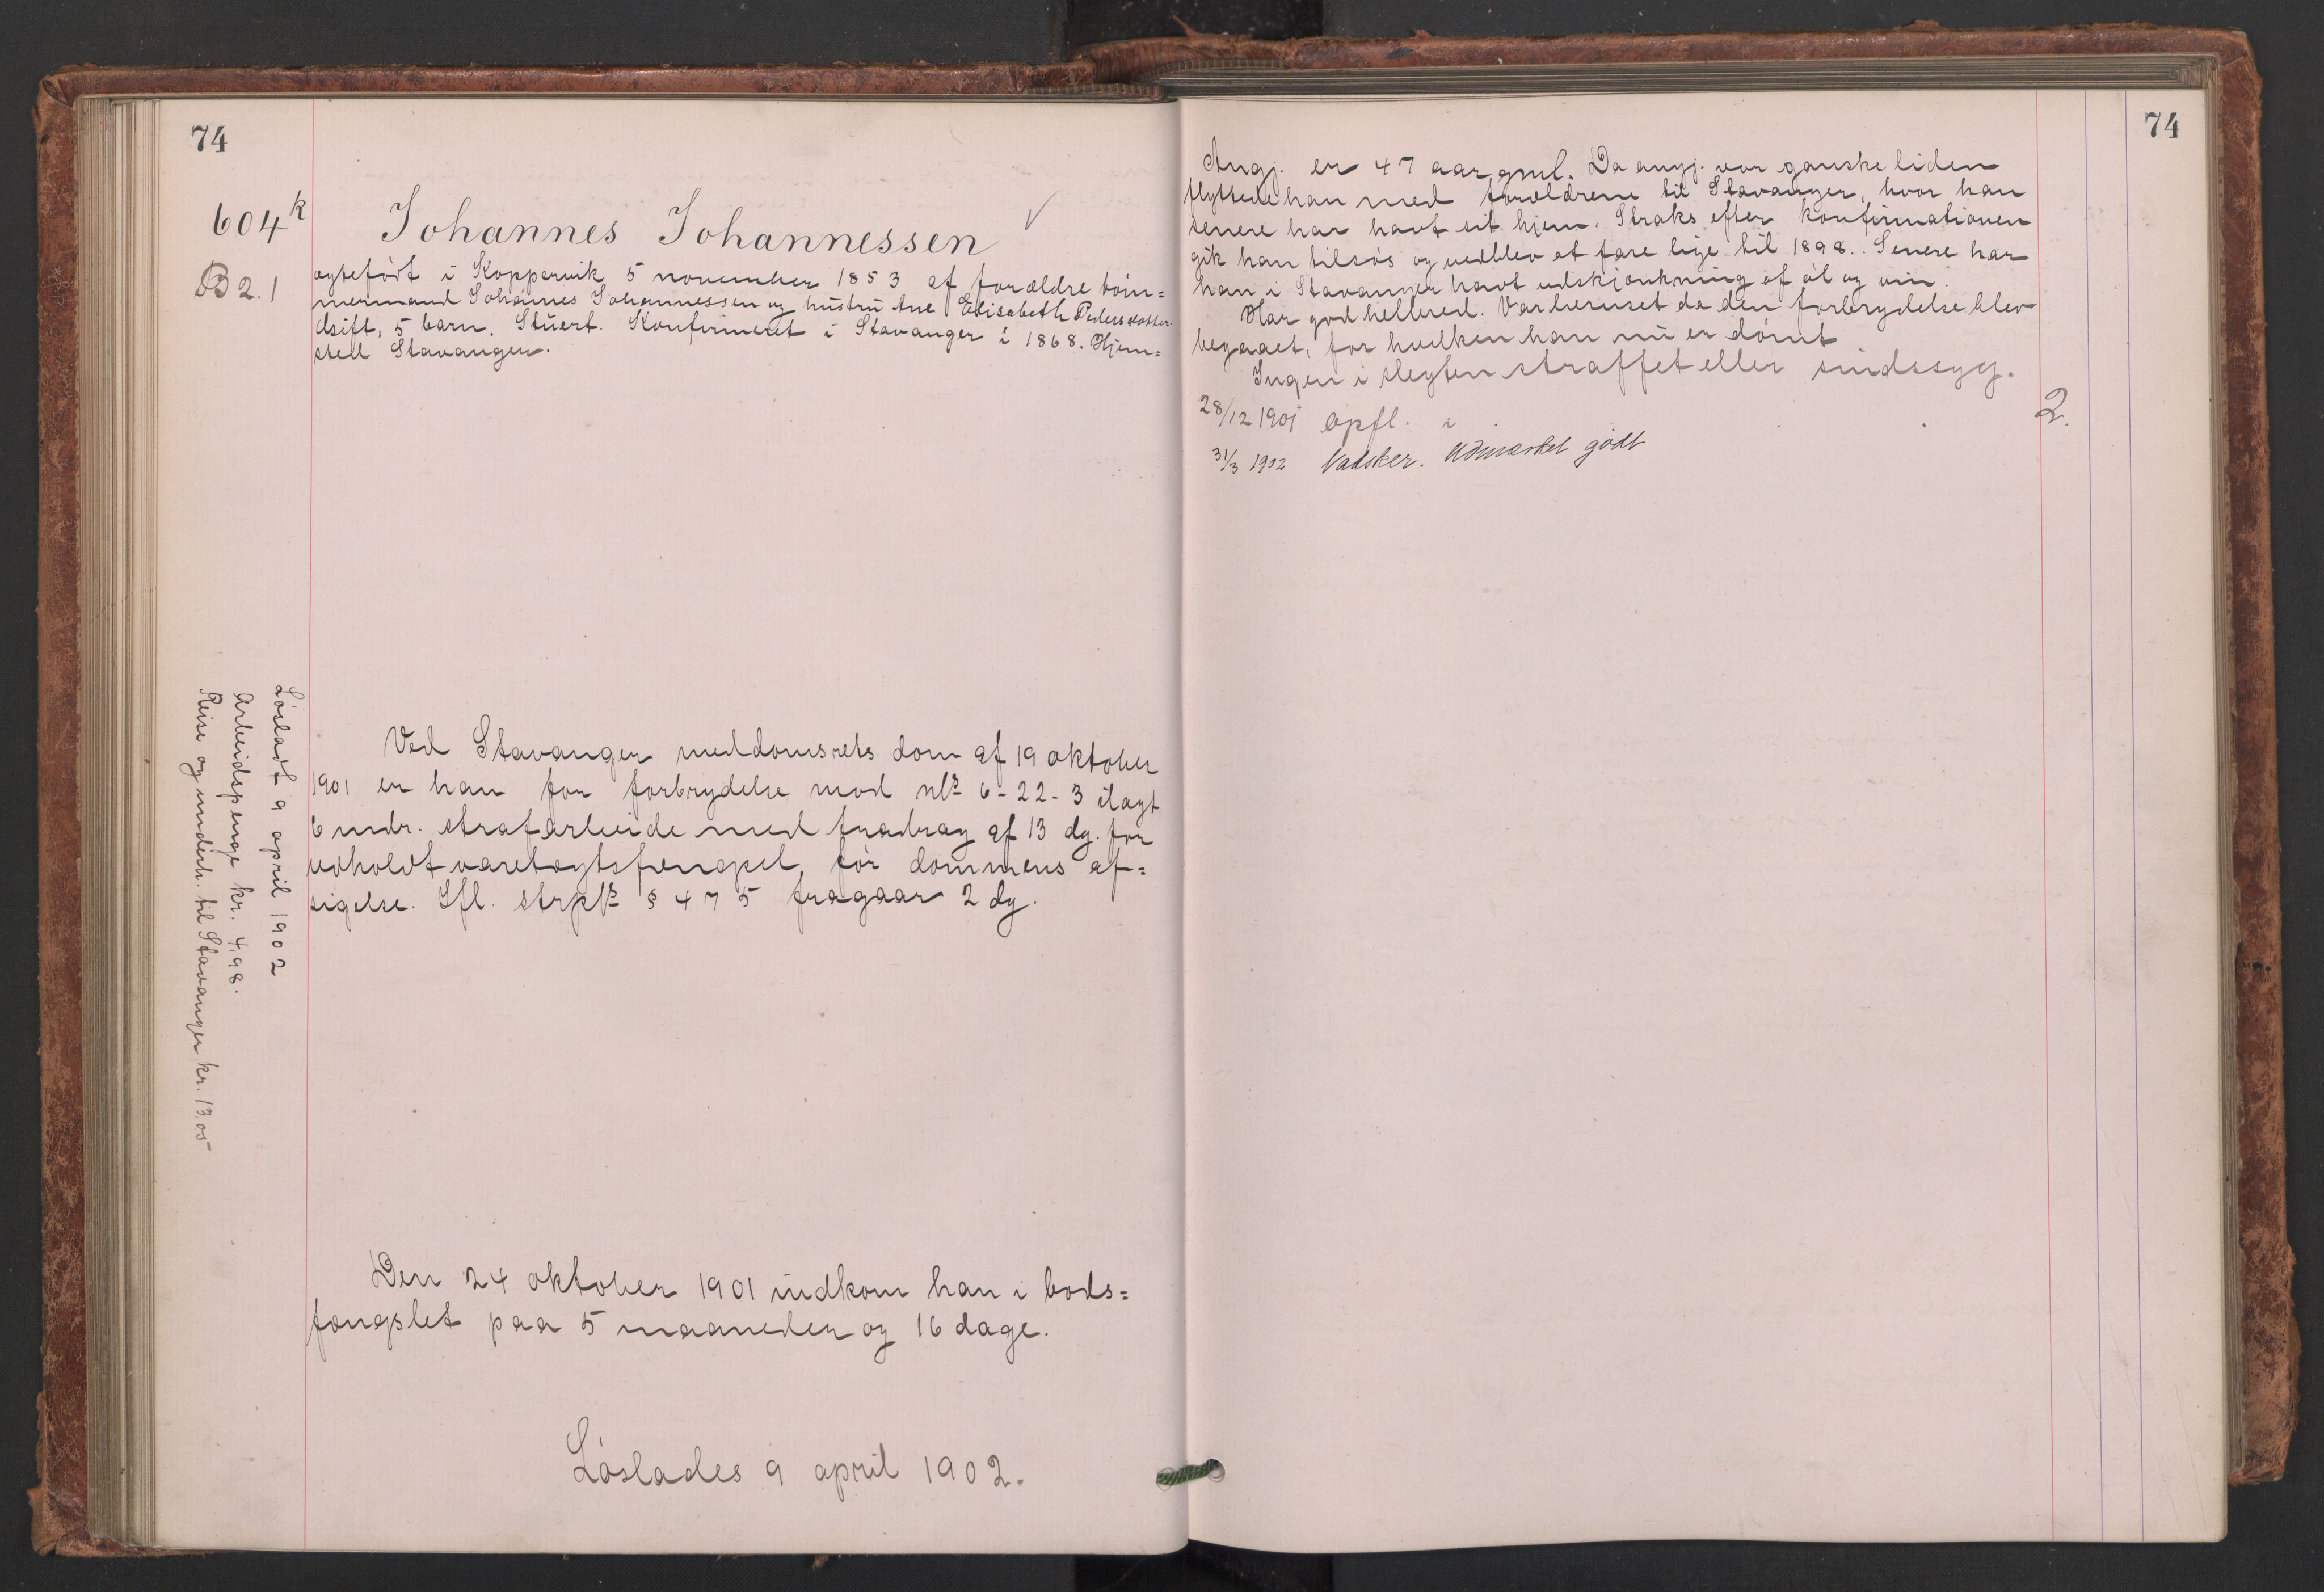 74
604k
B 2.1
Johannes Johannessen ✓
egtefødt i Koppervik 5 november 1853 af forældre tøm=
mermand Johannes Johannessen og hustru Ane Elisabeth Pedersdatter
Gift, 5 barn. Stuert. Konfirmeret i Stavanger i 1868. Hjem=
sted Stavanger.
Løsladt 9 april 1902
Arbeidspenge kr. 4,98.
Reise og underh. til Stavanger kr. 13.05
Ved Stavanger meddomsrets dom af 19 oktober
1901 er han for forbrydelse mod nls 6-22-3 ilagt
6 mdr. strafarbeide med fradrag af 13 dg. for
udholdt varetægtsfængsel før dommens af=
sigelse. Ifl. strpls § 475 fragaar 2 dg.
Den 24 oktober 1901 indkom han i bods=
fængslet paa 5 maaneder og 16 dage.
Løslades 9 april 1902.
74
Angj. er 47 aar gml. Da angj. var ganske liden
flyttede han med forældrene til Stavanger, hvor han
senere har havt sit hjem. Straks efter konfirmationen
gik han tilsøs og vedblev at fare lige til 1898. Senere har
han i Stavanger havt udskjænkning af øl og vin.
Har god helbred. Var beruset da den forbrydelse blev
begaaet, for hvilken han nu er dømt
Ingen i slegten straffet eller sindssyg.
28/12 1901 opfl. 2.
31/3 1902 Vadsker. Udmærket godt